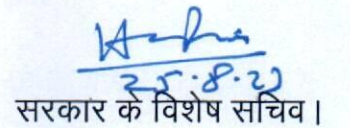 25.8.22
सरकार के विशेष सचिव।